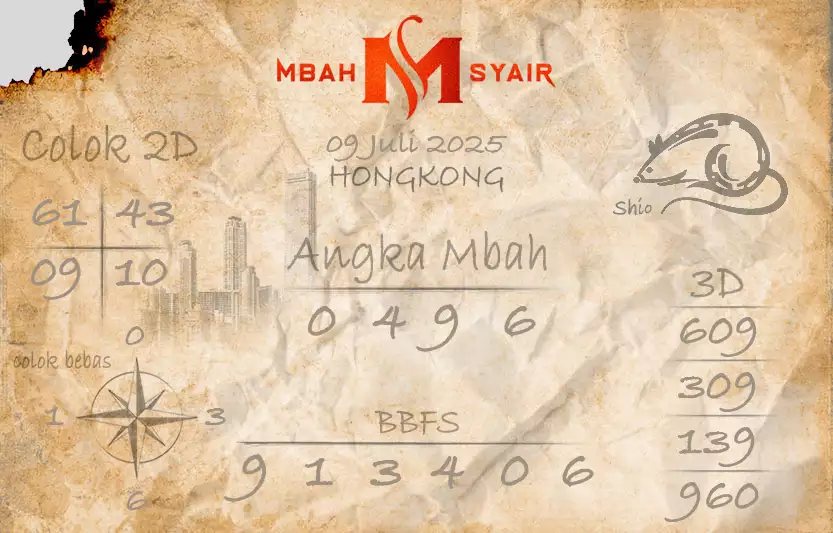 MBAH M SYAIR
09 Juli 2025
HONGKONG
Colok 2D
61 43
09 10
Shio
Angka Mbah
0 4 9 6
3D
609
309
139
960
colok bebas
0
1 3
6
BBFS
9 1 3 4 0 6